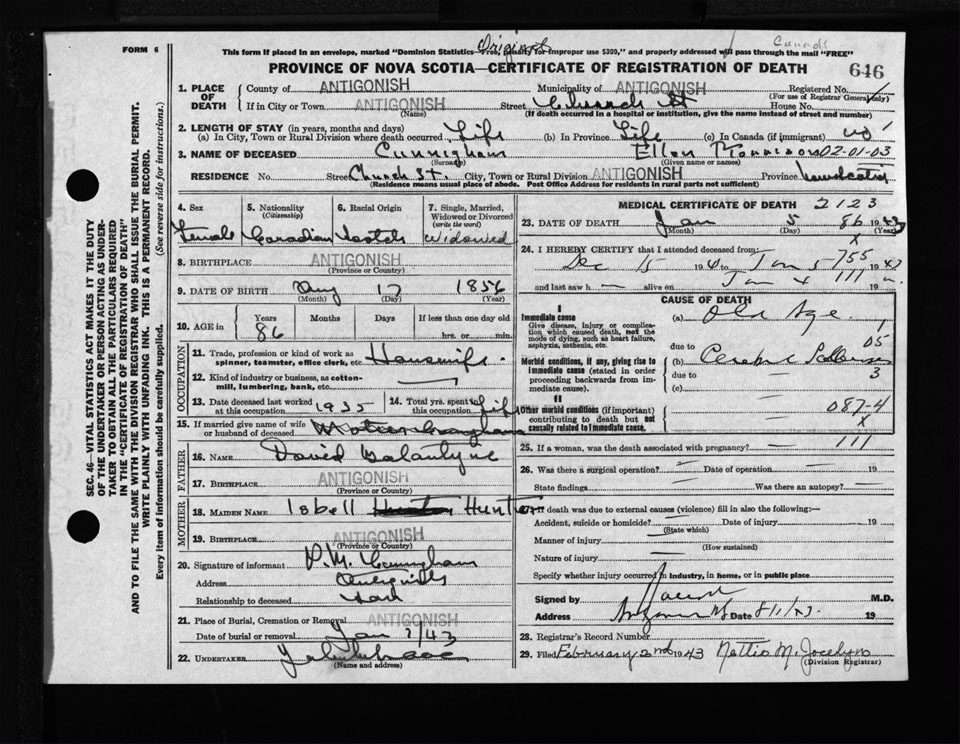 Canada
FORM 6
Original
This form if placed in an envelope, marked "Dominion Statistics—Free, Penalty for improper use $300," and properly addressed will pass through the mail "FREE"
PROVINCE OF NOVA SCOTIA—CERTIFICATE OF REGISTRATION OF DEATH
646
1. PLACE OF DEATH
County of ANTIGONISH Municipality of ANTIGONISH Registered No.
(For use of Registrar General only)
If in City or Town ANTIGONISH Street Church St House No.
(Name) (If death occurred in a hospital or institution, give the name instead of street and number)
2. LENGTH OF STAY (in years, months and days)
(a) In City, Town or Rural Division where death occurred Life (b) In Province Life (c) In Canada (if immigrant)
3. NAME OF DECEASED Cunningham Ellen 02-01-03
(Surname) (Given name or names)
RESIDENCE No. Street Church St. City, Town or Rural Division ANTIGONISH Province Nova Scotia
(Residence means usual place of abode. Post Office Address for residents in rural parts not sufficient)
4. Sex 5. Nationality (Citizenship) 6. Racial Origin 7. Single, Married, Widowed or Divorced (write the word)
Female Canadian Scotch Widowed
8. BIRTHPLACE ANTIGONISH
(Province or Country)
9. DATE OF BIRTH Aug 17 1856
(Month) (Day) (Year)
10. AGE in Years Months Days If less than one day old
86 hrs. or min.
OCCUPATION
11. Trade, profession or kind of work as spinner, teamster, office clerk, etc. Housewife.
12. Kind of industry or business, as cotton-mill, lumbering, bank, etc.
13. Date deceased last worked at this occupation 1935 14. Total yrs. spent in this occupation Life
15. If married give name of wife or husband of deceased
FATHER
16. NAME David
17. BIRTHPLACE ANTIGONISH
(Province or Country)
MOTHER
18. MAIDEN NAME Isbell Hunter
19. BIRTHPLACE ANTIGONISH
(Province or Country)
20. Signature of informant P.M. Cunningham
Address
Relationship to deceased
21. Place of Burial, Cremation or Removal ANTIGONISH
Date of burial or removal Jan 7/43
22. UNDERTAKER
(Name and address)
MEDICAL CERTIFICATE OF DEATH 2123
23. DATE OF DEATH Jan 5 86 1943
(Month) (Day) (Year)
X
24. I HEREBY CERTIFY that I attended deceased from:
Dec 15 19 to Jan 5 755 19
and last saw h alive on Jan 4 111 19
CAUSE OF DEATH
I
Immediate cause
Give disease, injury or complication which caused death, not the mode of dying, such as heart failure, asphyxia, asthenia, etc.
(a) Old Age
due to 05
Morbid conditions, if any, giving rise to immediate cause (stated in order proceeding backwards from immediate cause).
(b)
due to 3
(c)
II
Other morbid conditions (if important) contributing to death but not causally related to immediate cause.
087-4
X
25. If a woman, was the death associated with pregnancy? 111
26. Was there a surgical operation? Date of operation 19
State findings Was there an autopsy?
27. If death was due to external causes (violence) fill in also the following:—
Accident, suicide or homicide? Date of injury 19
(State which)
Manner of injury
(How sustained)
Nature of injury
Specify whether injury occurred in industry, in home, or in public place
Signed by M.D.
Address Date 8/1/43. 19
28. Registrar's Record Number
29. Filed February 2nd 1943 Nettie M. Jocelyn
(Division Registrar)
SEC. 46—VITAL STATISTICS ACT MAKES IT THE DUTY
OF THE UNDERTAKER OR PERSON ACTING AS UNDER-
TAKER TO OBTAIN ALL THE PARTICULARS REQUIRED
IN THE "CERTIFICATE OF REGISTRATION OF DEATH"
AND TO FILE THE SAME WITH THE DIVISION REGISTRAR WHO SHALL ISSUE THE BURIAL PERMIT.
WRITE PLAINLY WITH UNFADING INK. THIS IS A PERMANENT RECORD.
Every item of information should be carefully supplied. (See reverse side for instructions.)